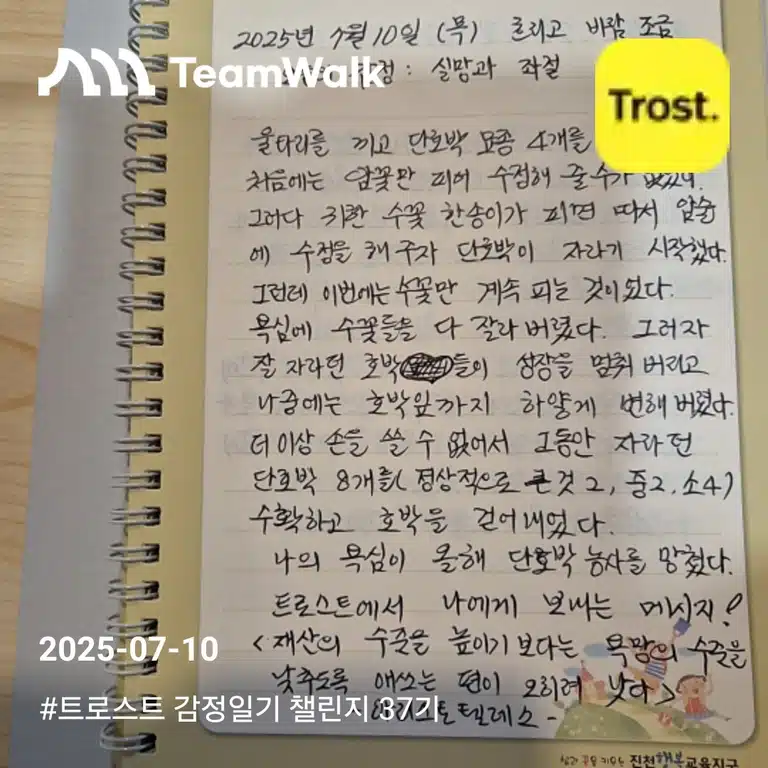 2025년 7월 10일 (목) 흐리고 바람 조금
TeamWalk
감정 : 실망과 좌절
Trost.
울타리를 끼고 단호박 모종 4개를
처음에는 암꽃만 피어 수정해 줄수가 없었다.
그러다 귀한 수꽃 한송이가 피면 따서 암술
에 수정을 해 주자 단호박이 자라기 시작했다.
그런데 이번에는 수꽃만 계속 피는 것이 었다.
욕심에 수꽃들을 다 잘라 버렸다. 그러자
잘 자라던 호박들이 성장을 멈춰 버리고
나중에는 호박잎까지 하얗게 변해 버렸다.
더 이상 손을 쓸 수 없어서 그동안 자라던
단호박 8개를( 정상적으로 큰것 2, 중2, 소4)
수확하고 호박을 걷어 내었다.
나의 욕심이 올해 단호박 농사를 망쳤다.
트로스트에서 나에게 보내는 메시지!
2025-07-10
< 재산의 수준을 높이기 보다는 욕망의 수준을
낮추도록 애쓰는 편이 오히려 낫다>
#트로스트 감정일기 챌린지 37기
아리스토텔레스 -
진천행복교육지구